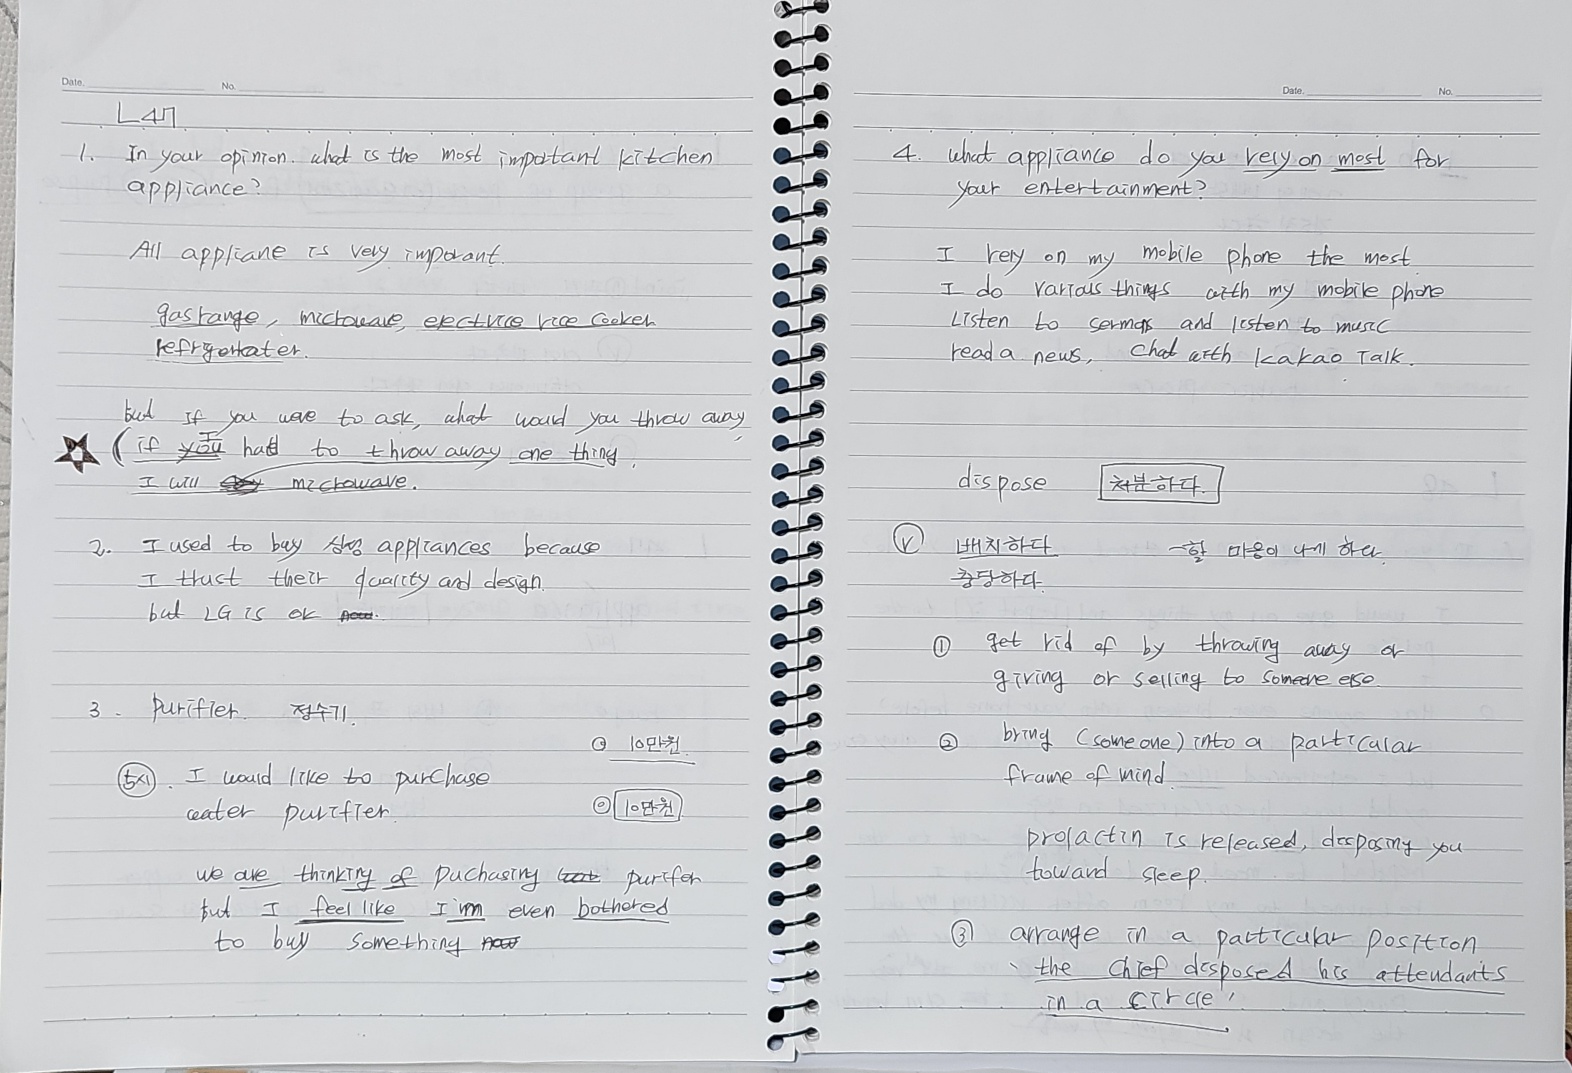 Date.
No.
L47
1. In your opinion. what is the most important kitchen
appliance?
All appliane is very imporant.
gas range, microwave, electrice rice cooker
but if you were to ask, what would you throw away,
(if I had to throw away one thing,
I will microwave.
2. I used to buy 삼성 appliances because
I trust their quality and design.
but LG is ok
3. purifier. 정수기.
10만원
I would like to purchase
water purifier.
10만원
we are thinking of puchasing purifer
but I feel like I'm even bothered
to buy something
Date.
No.
4. What appliance do you rely on most for
your entertainment?
I rely on my mobile phone the most
I do various things with my mobile phone
Listen to and listen to music
read a news, chat with kakao Talk.
dispose 처분하다.
Ⓥ 배치하다 ~할 마음이 나게 하다.
충당하다.
① get rid of by throwing away or
giving or selling to someone else.
② bring (someone) into a particular
frame of mind.
prolactin is released, disposing you
toward sleep.
③ arrange in a particular position
the chief disposed his attendants
in a circle